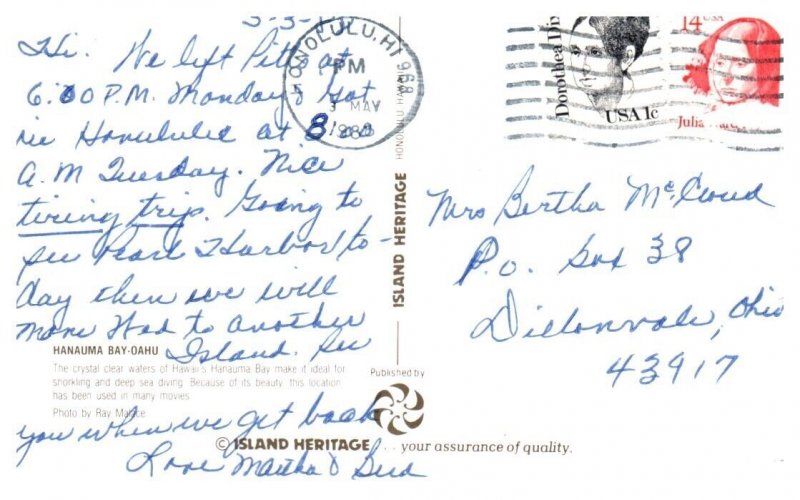 5-3-88
Hi. We left Pitts at
6:00 P.M. Monday & Got
in Honululu at 8:00
A.M Tuesday. Nice
tiring trip. Going to
see Pearl Harbor to-
day then we will
move to another
Island. See
you when we get back
Love Martha & Bud
HANAUMA BAY-OAHU
The crystal clear waters of Hawaii's Hanauma Bay make it ideal for
snorkling and deep sea diving. Because of its beauty, this location
has been used in many movies.
Photo by Ray Mailace
HONOLULU, HI 968
PM
3 MAY
1988
HONOLULU HAWAII
ISLAND HERITAGE
Published by
© ISLAND HERITAGE . . . your assurance of quality.
Dorothea Dix
USA 1c
14 USA
Julia Ward
Mrs Bertha McCloud
P.O. Box 38
Dillonvale, Ohio
43917